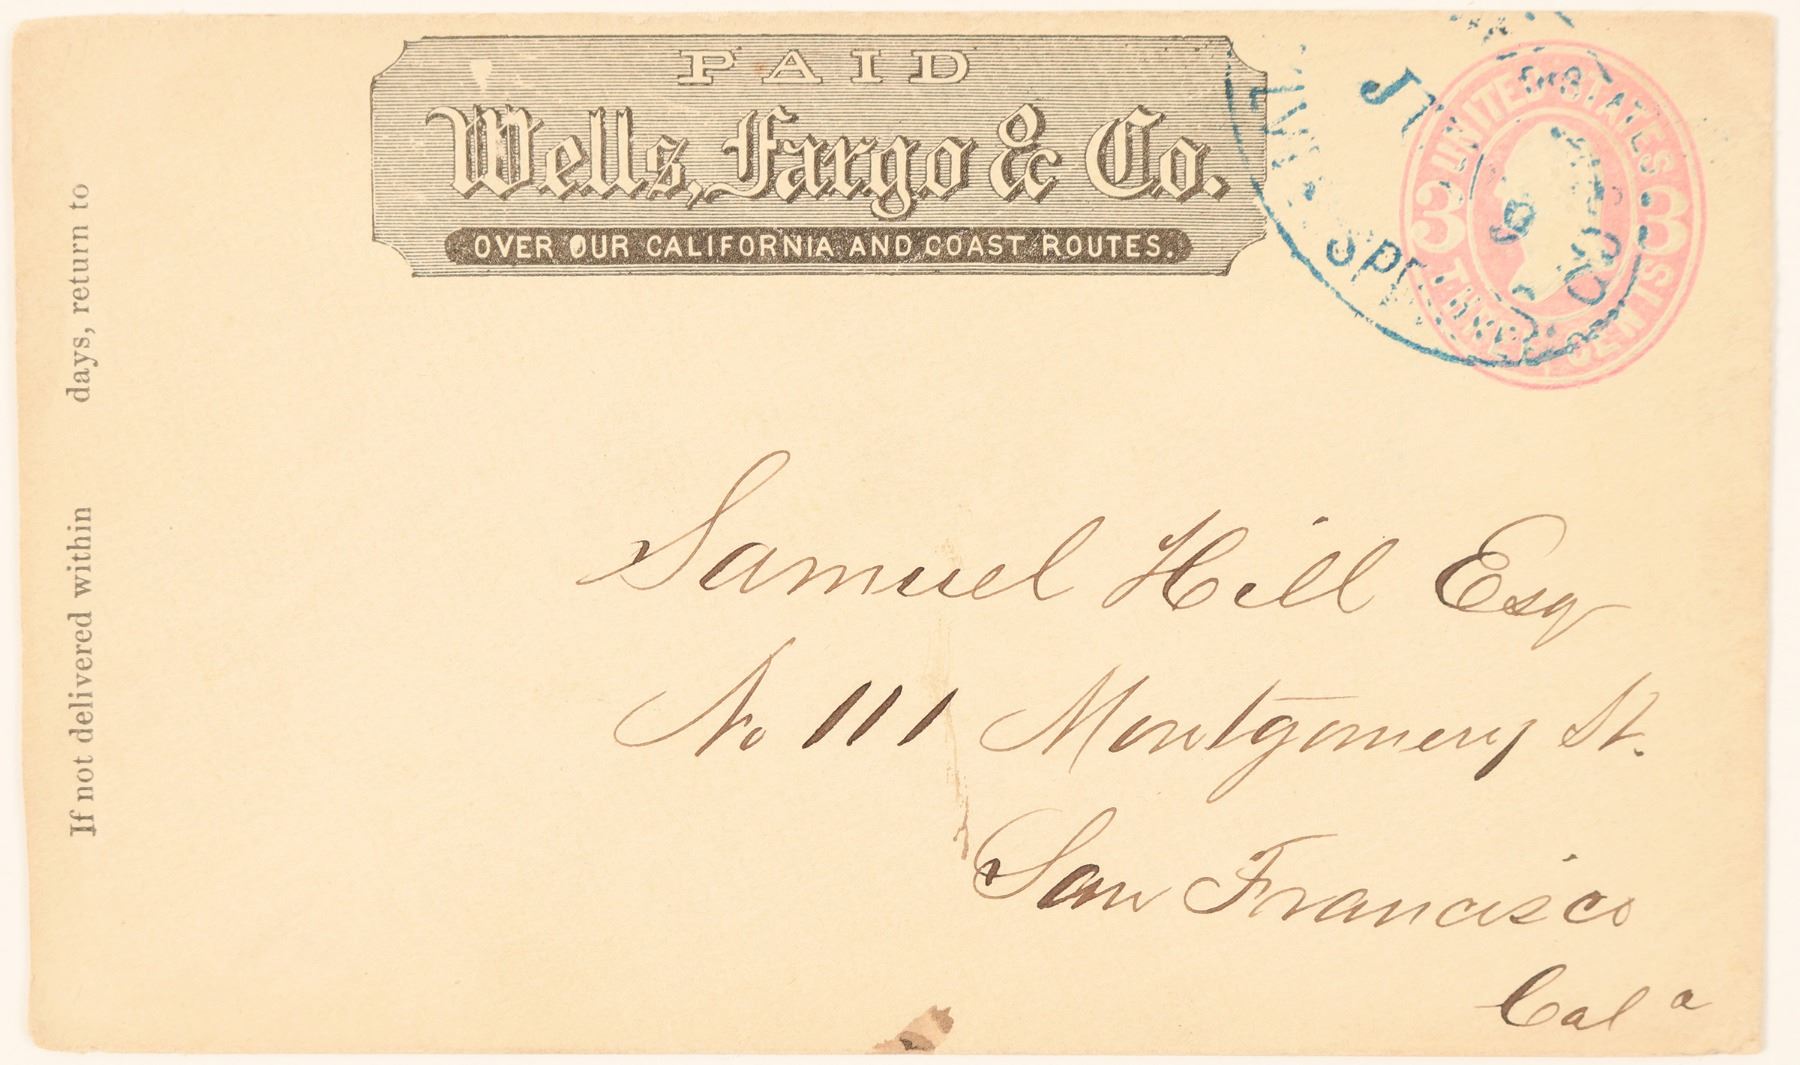 PAID
Wells, Fargo & Co.
OVER OUR CALIFORNIA AND COAST ROUTES.
UNITED STATES
3 3
THREE CENTS
If not delivered within days, return to
Samuel Hill Esq
No 111 Montgomery St.
San Francisco
Cal a